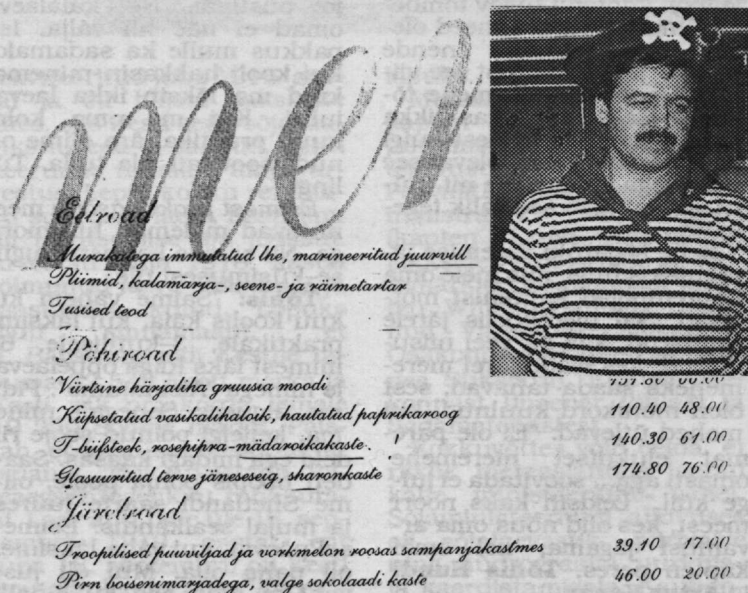 men
Eelroad
Murakatega immutatud lhe, marineeritud juurvill
Pliimid, kalamarja-, seene- ja räimetartar
Tusised teod
Põhiroad
Vürtsine härjaliha gruusia moodi
Küpsetatud vasikalihaloik, hautatud paprikaroog 110.40 48.00
T-biifsteek, rosepipra-mädaroikakaste. ! 140.30 61.00
Glasuuritud terve jäneseseig, sharonkaste 174.80 76.00
Järelroad
Troopilised puuviljad ja vorkmelon roosas sampanjakastmes 39.10 17.00
Pirn boisenimarjadega, valge sokolaadi kaste 46.00 20.00